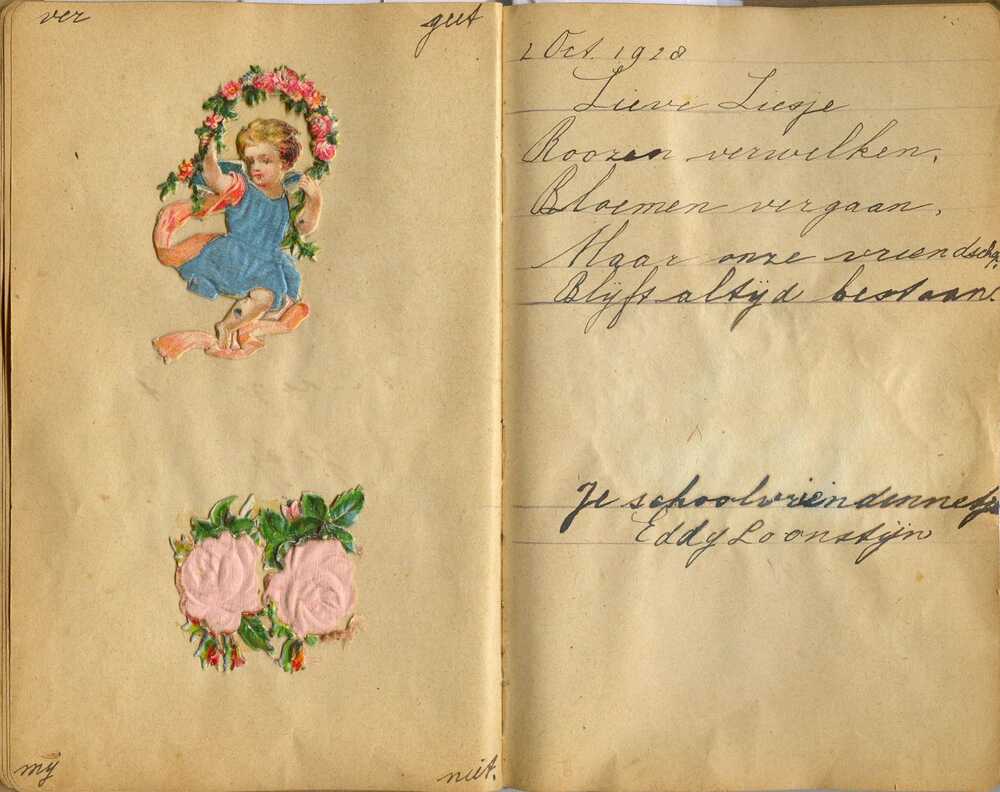 ver geet
mij niet.
2 Oct. 1928
Lieve Liesje
Roozen verwelken,
Bloemen vergaan,
Maar onze vriendschap
Blijft altijd bestaan.
Je schoolvriendennetje
Eddy Loonstijn